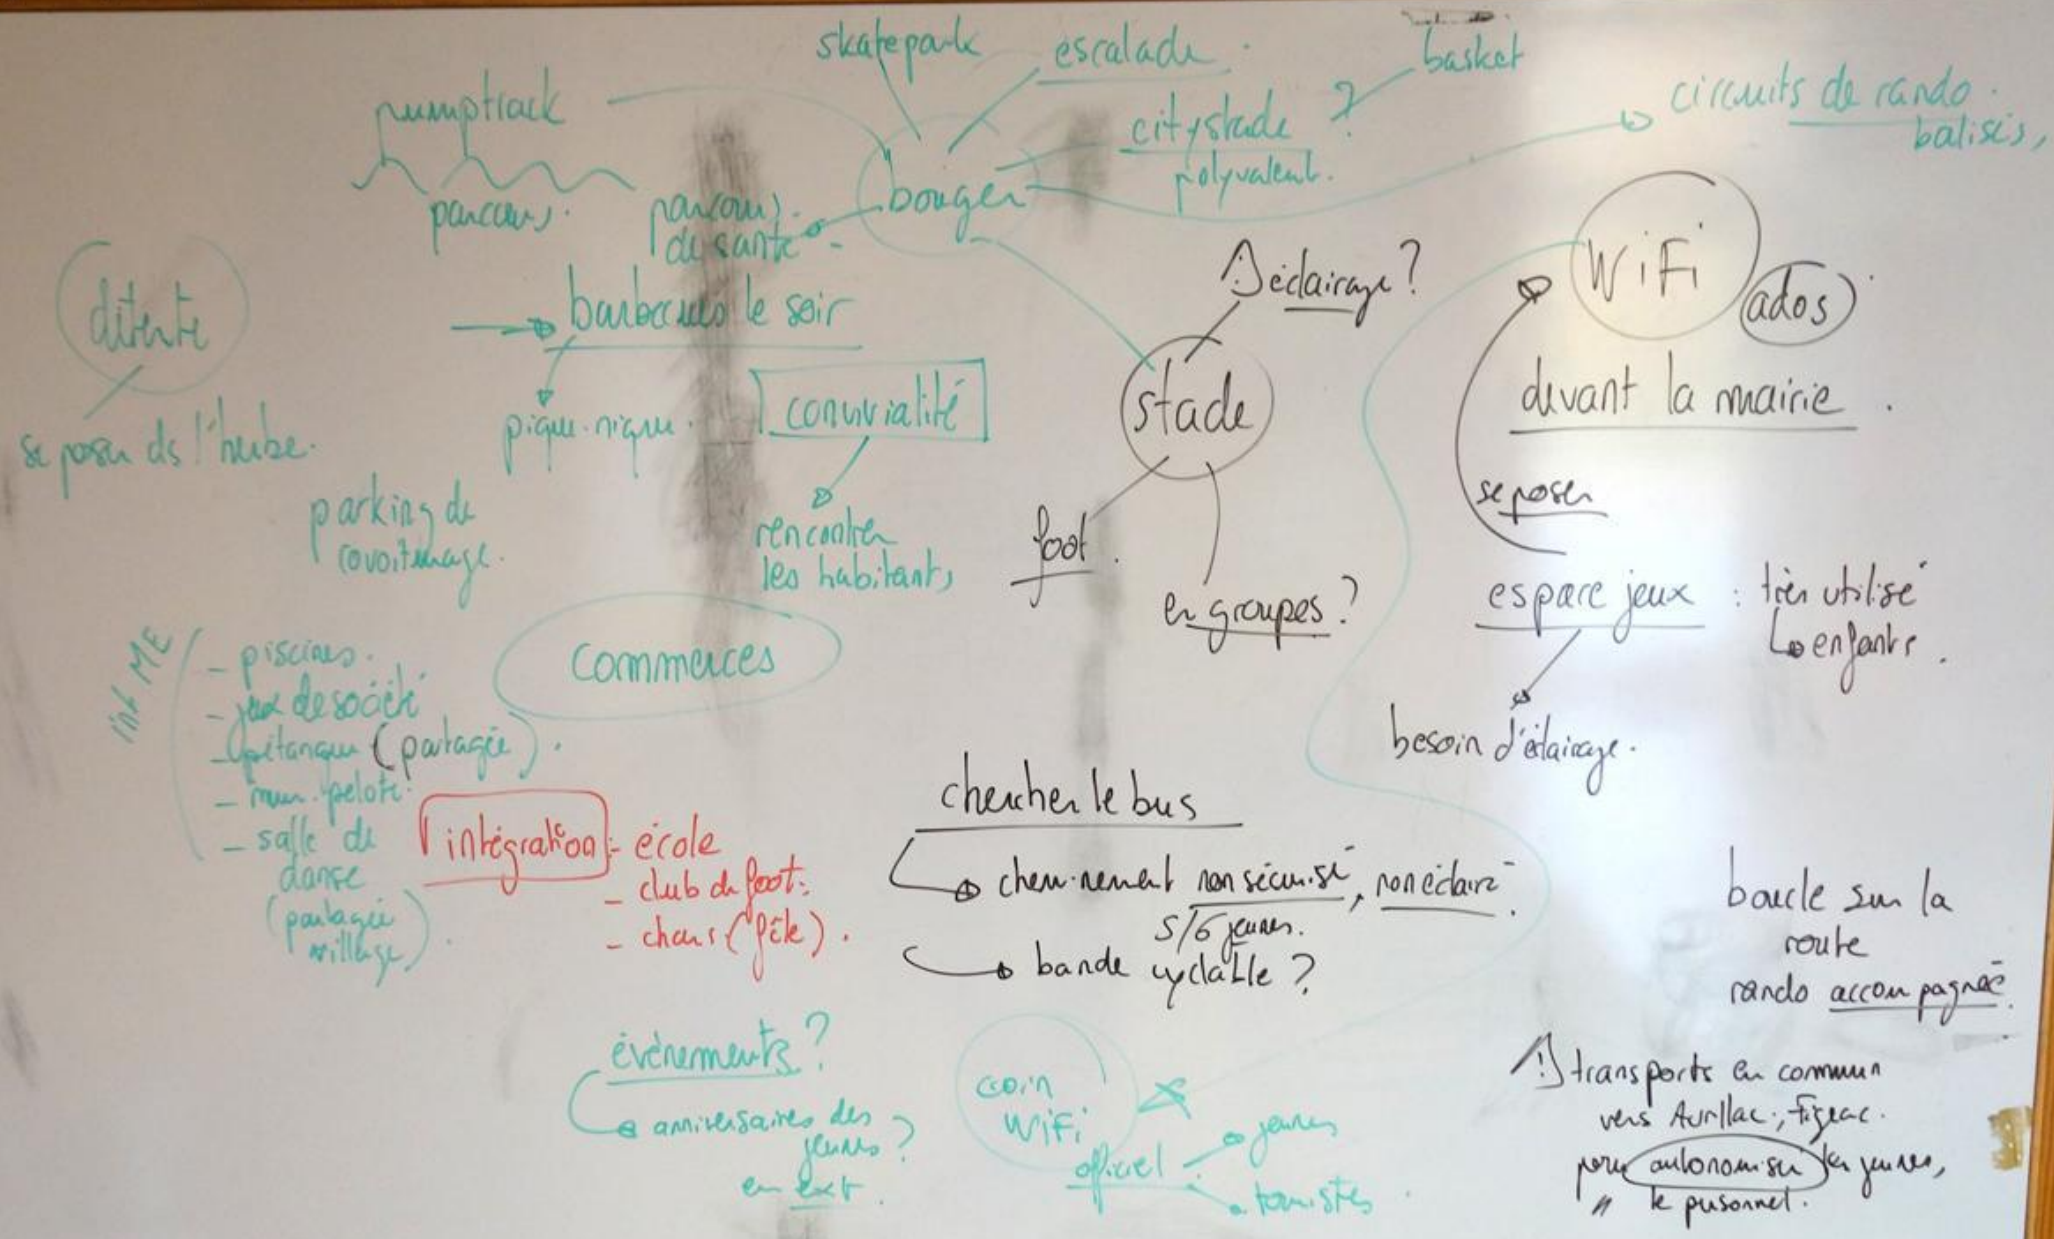 skatepark
escalade.
basket
pumptrack
citystade ?
polyvalent.
circuits de rando.
balisés,
parcours.
parcours.
de santé
bouger
détente
barbecues le soir
⚠ éclairage ?
WiFi
ados
stade
devant la mairie.
convivialité
pique-nique.
se poser ds l'herbe.
parking de
covoiturage.
rencontrer
les habitants,
foot.
en groupes ?
se poser
espace jeux : très utilisé
enfants.
besoin d'éclairage.
Commerces
int ME
- piscines.
- jeux de société
- pétanque (partagée).
- mur pelote.
- salle de
danse
(partagée
village).
intégration - école
- club de foot.
- chars (fête).
chercher le bus
cheminement non sécurisé, non éclairé.
5/6 jeunes.
bande cyclable ?
boucle sur la
route
rando accompagnée.
événements ?
anniversaires des
jeunes ?
en ext.
coin
WiFi
officiel
jeunes
touristes.
⚠ transports en commun
vers Aurillac, Figeac.
pour autonomiser les jeunes,
" le personnel.